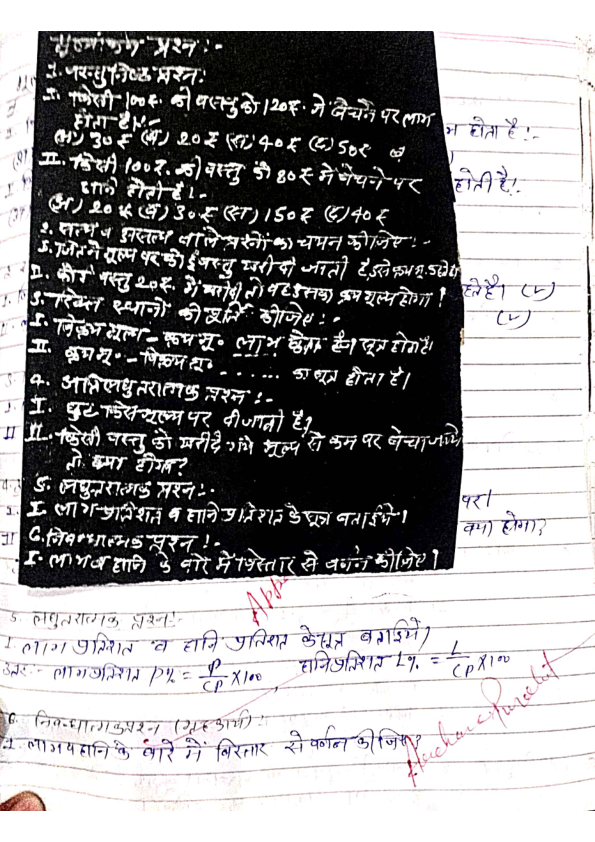 मूल्यांकन प्रश्न :-
1. वस्तुनिष्ठ प्रश्न:
I. किसी 100रु. की वस्तु को 120रु. में बेचने पर लाभ
होता है।:-
(अ) 30रु (ब) 20रु (स) 40रु (द) 50रु
म होता है:-
II. किसी 100रु. की वस्तु को 80रु में बेचने पर
हानि होती है।-
होती है:-
(अ) 20रु (ब) 30रु (स) 150रु (द) 40रु
2. सत्य व असत्य वाले प्रश्नों का चयन कीजिए :-
I. जितने मूल्य पर कोई वस्तु खरीदी जाती है, उसे क्रय मू.
हते है। (✓)
II. कोई वस्तु 20रु. में खरीदी तो वह उसका क्रय मूल्य होगा।
(✓)
3. रिक्त स्थानों की पूर्ति कीजिए :-
I. विक्रय मूल्य - क्रय मू० लाभ सूत्र होता है।
II. क्रय मू. - विक्रय मू. ........ का सूत्र होता है।
4. अतिलघुतरात्मक प्रश्न :-
I. छुट किस मूल्य पर दी जाती है?
II. किसी वस्तु को खरीदे गये मूल्य से कम पर बेचा जाये
तो क्या होगा?
पर।
क्या होगा?
5. लघुतरात्मक प्रश्न:-
I. लाभ प्रतिशत व हानि प्रतिशत के सूत्र बताईये।
6. निबन्धात्मक प्रश्न :-
I. लाभ व हानि के बारे में विस्तार से वर्णन कीजिए।
5. लघुतरात्मक प्रश्न:-
I. लाभ प्रतिशत व हानि प्रतिशत के सूत्र बताईये।
उत्तर:- लाभ प्रतिशत P% = P/CP X100, हानि प्रतिशत L% = L/CP X100
6. निबन्धात्मक प्रश्न (गृहकार्य):-
I. लाभ व हानि के बारे में विस्तार से वर्णन कीजिए?